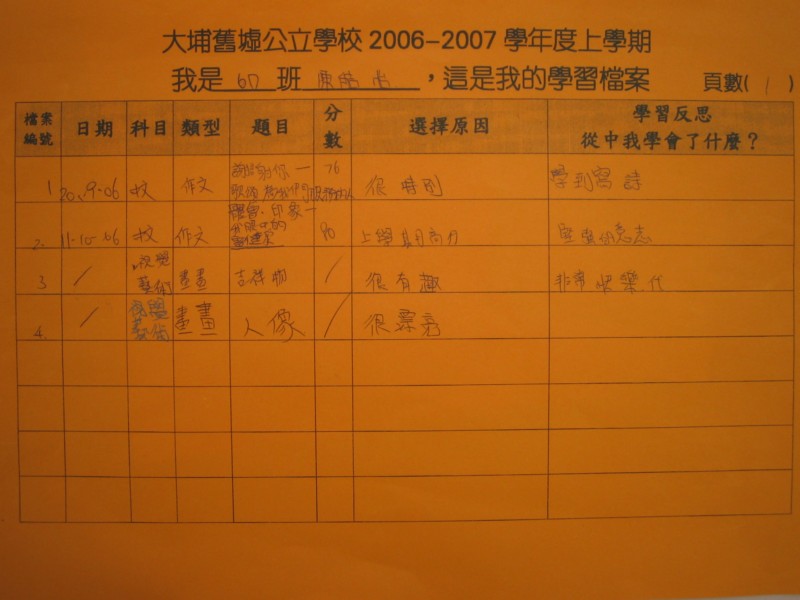 大埔舊墟公立學校 2006-2007 學年度上學期
我是 6D 班，這是我的學習檔案 頁數( 1 )
檔案編號 日期 科目 類型 題目 分數 選擇原因 學習反思
從中我學會了什麼？
1 20-9-06 作文 謝謝你一 76 很特別 學到寫詩
2. 11-10-06 作文 印象一 上學期 意志
3 / 視覺藝術 畫畫 吉祥物 / 很有趣 非常
4. / 視覺藝術 畫畫 人像 / 很漂亮